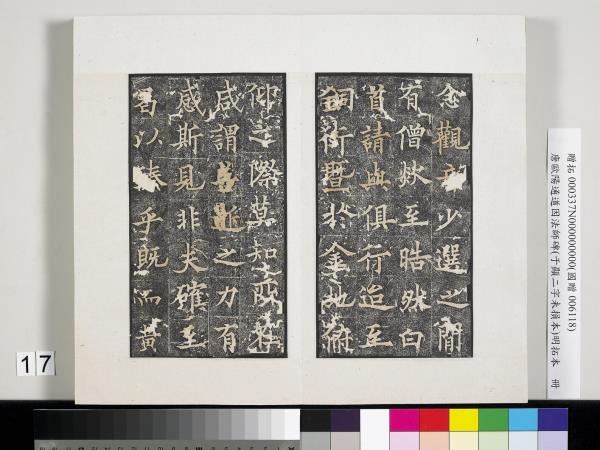 念觀音少選之間
有僧欻至皓然白
首請與俱行迨至
銅街暨於金地俯
仰之際莫知所在
咸謂善逝之力有
感斯見非夫確至
曷以臻乎既而黃
贈拓 000337N000000000(國贈 006118)
唐歐陽通道因法師碑(于顯二字未損本)明拓本 冊
17